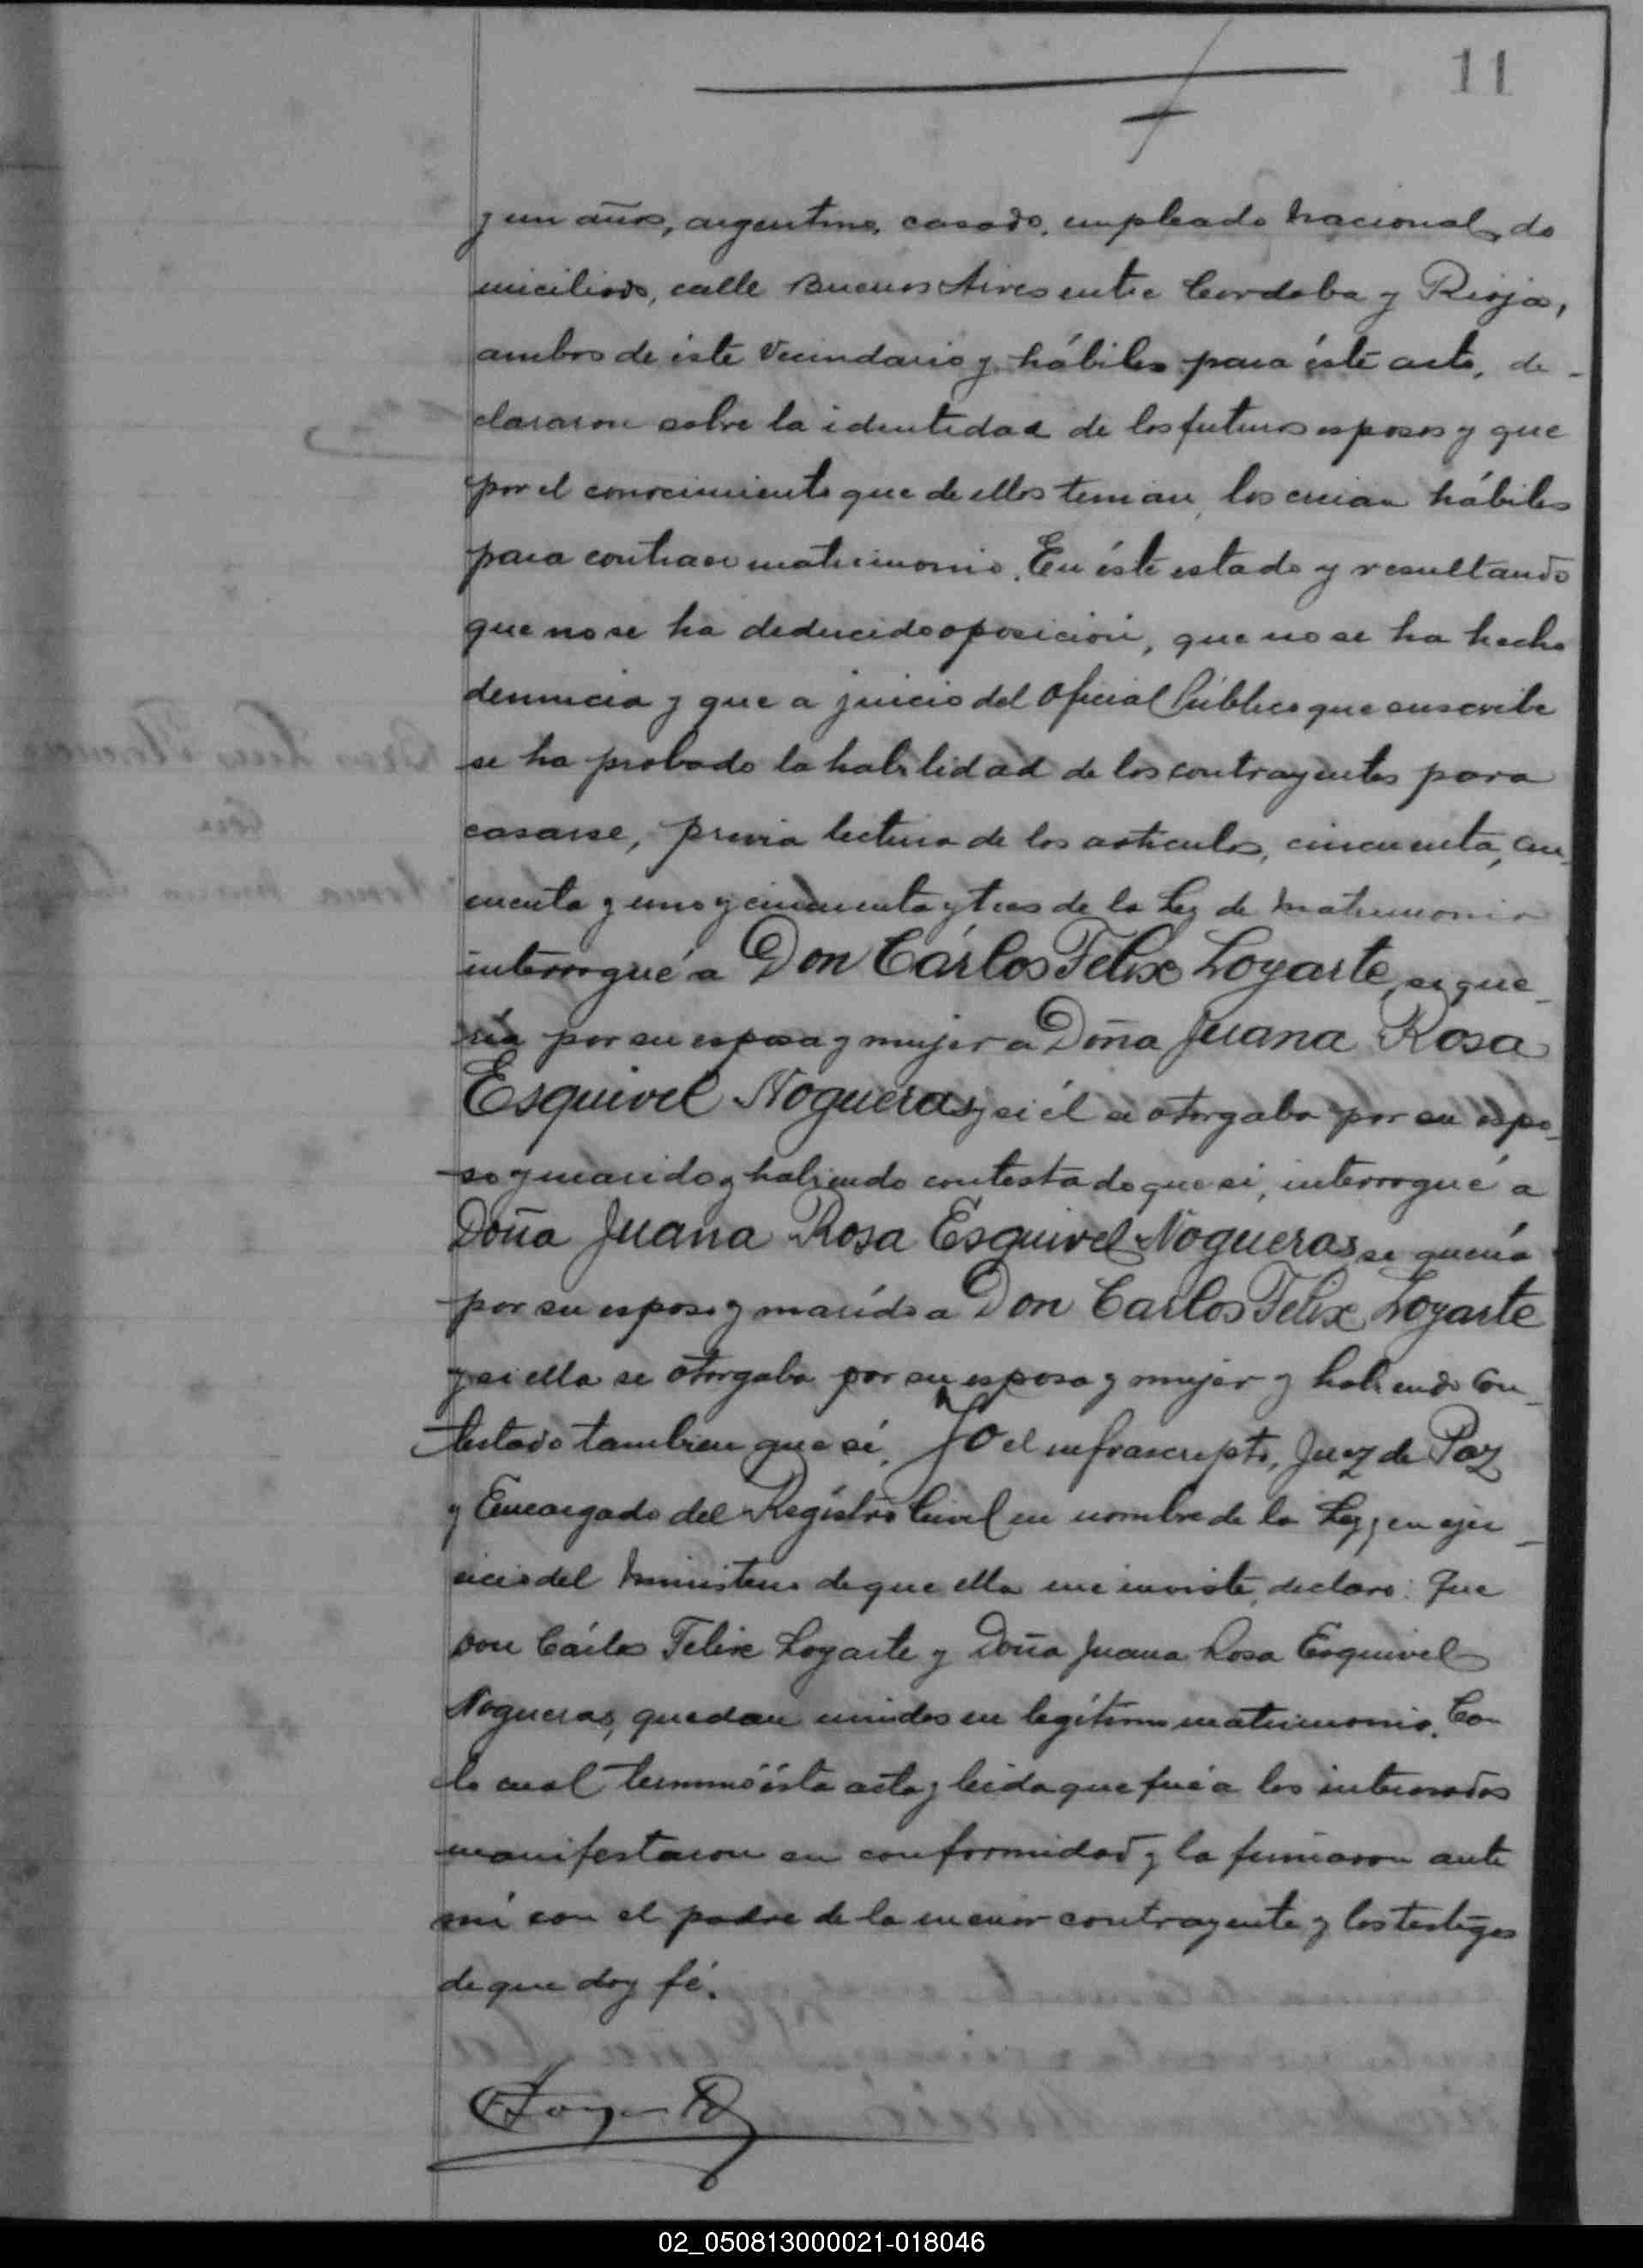 11
y un años, argentino, casado, empleado Nacional, do
miciliado, calle Buenos Aires entre Cordoba y Rioja,
ambos de éste Vecindario y hábiles para éste acto, de-
clararon sobre la identidad de los futuros esposos y que
por el conocimiento que de ellos tenian, los creian hábiles
para contraer matrimonio. En éste estado y resultando
que no se ha deducido oposición, que no se ha hecho
denuncia y que a juicio del Oficial Público que suscribe
se ha probado la habilidad de los contrayentes para
casarse, previa lectura de los artículos, cincuenta, cin-
cuenta y uno y cincuenta y tres de la Ley de Matrimonio
interrogué a Don Cárlos Felix Loyarte, si que-
ría por su esposa y mujer a Doña Juana Rosa
Esquivel Nogueras y si él se otorgaba por su espo-
so y marido y habiendo contestado que si, interrogué a
Doña Juana Rosa Esquivel Nogueras, si quería
por su esposo y marido a Don Carlos Felix Loyarte
y si ella se otorgaba por su esposa y mujer y habiendo con-
testado tambien que sí, Yo el infrascripto, Juez de Paz
y Encargado del Registro Civil en nombre de la Ley y en ejer-
cicio del Ministerio de que ella me inviste, declaro: Que
Don Cárlos Felix Loyarte y Doña Juana Rosa Esquivel
Nogueras, quedan unidos en legítimo matrimonio. Con
lo cual terminó ésta acta y leida que fué a los interesados
manifestaron su conformidad y la firmaron ante
mí con el padre de la menor contrayente y los testigos
de que doy fé.
02_050813000021-018046